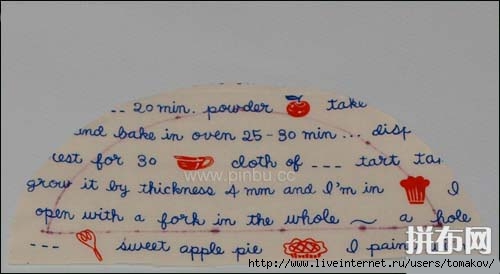 20 min. powder take
and bake in oven 25-30 min ... disp
est for 30 cloth of --- tart ta
www.pinbu.cc
grow it by thickness 4 mm and I'm in I
open with a fork in the whole ~ a hole
--- sweet apple pie I pain
拼布网
http://www.liveinternet.ru/users/tomakov/